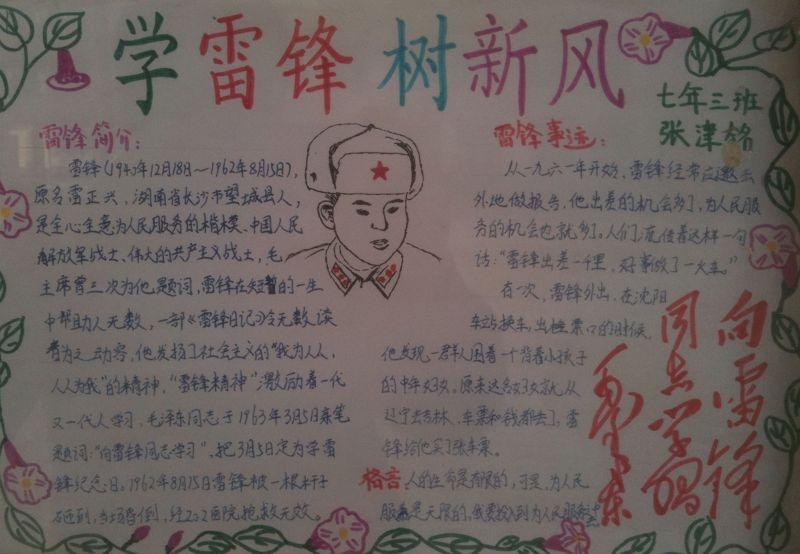 学雷锋 树新风
七年三班
张津铭
雷锋简介:
雷锋(1940年12月18日~1962年8月15日),
原名雷正兴,湖南省长沙市望城县人,
是全心全意为人民服务的楷模、中国人民
解放军战士、伟大的共产主义战士,毛
主席曾三次为他题词,雷锋在短暂的一生
中帮助人无数,一部《雷锋日记》令无数读
者为之动容,他发扬了社会主义的“我为人人,
人人为我”的精神,“雷锋精神”激励着一代
又一代人学习,毛泽东同志于1963年3月5日亲笔
题词:“向雷锋同志学习”,把3月5日定为学雷
锋纪念日。1962年8月15日雷锋被一根杆子
砸到,当场昏倒,经202医院抢救无效。
雷锋事迹:
从一九六一年开始,雷锋经常应邀去
外地做报告,他出差的机会多了,为人民服
务的机会也就多了。人们流传着这样一句
话:“雷锋出差一千里,好事做了一火车。”
有一次,雷锋外出,在沈阳
车站换车,出检票口的时候,
他发现一群人围着一个背着小孩子
的中年妇女。原来这名妇女就从
辽宁去吉林,车票和钱都丢了,雷
锋给他买了张车票。
格言 人的生命是有限的,可是,为人民
服务是无限的,我要投入到为人民服务中去
向雷锋
同志学习
毛泽东